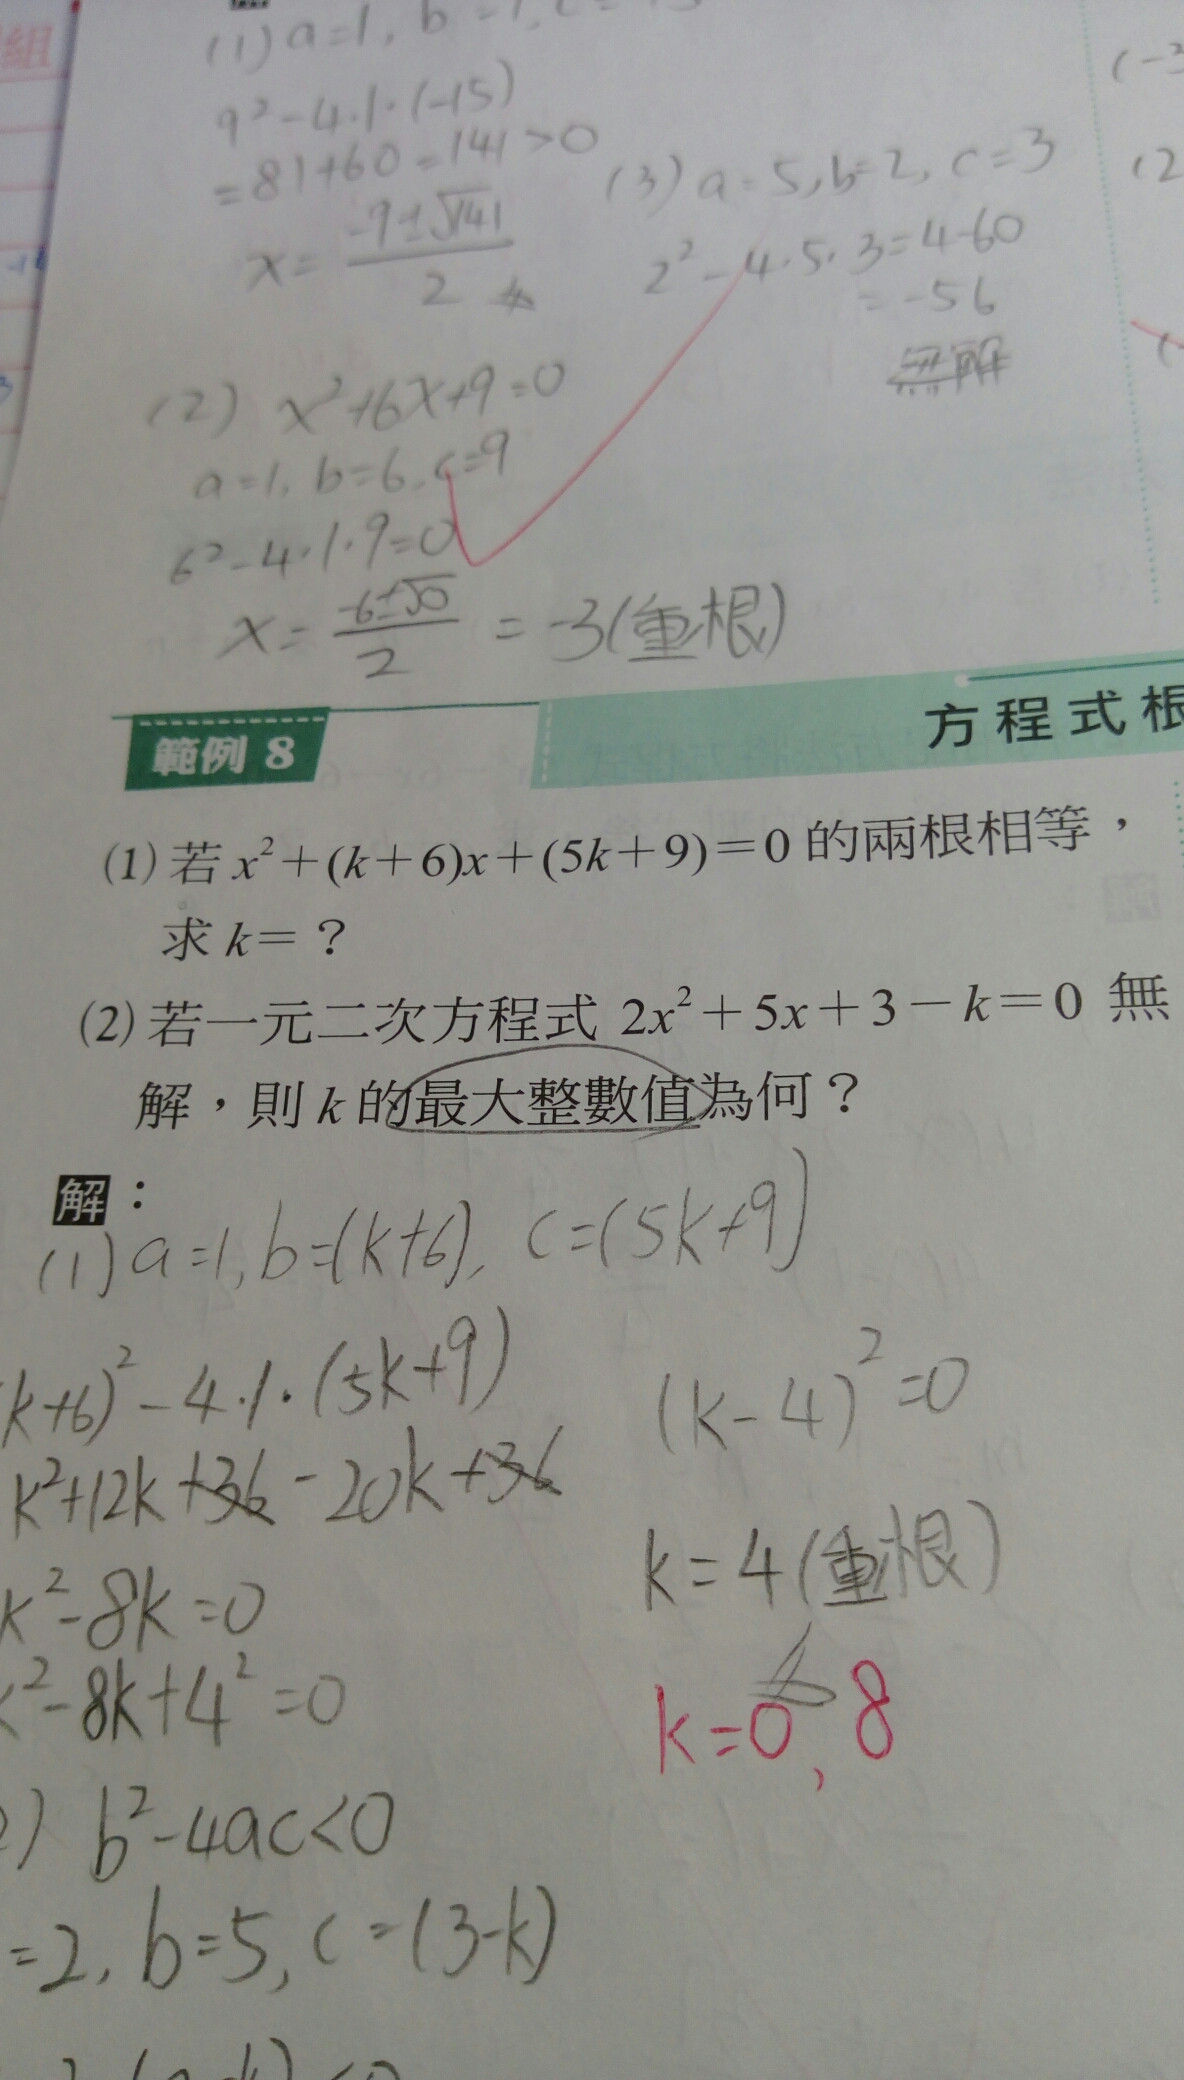 組
(1) a=1, b
9²-4·1·(-15)
=81+60=141>0
x=(-9±√141)/2
(3) a=5, b=2, c=3
2²-4·5·3=4-60
=-56
無解
(2) x²+6x+9=0
a=1, b=6, c=9
6²-4·1·9=0
x=(-6±√0)/2 =-3(重根)
範例 8
方程式根
(1) 若 x²+(k+6)x+(5k+9)=0 的兩根相等，
求 k=？
(2) 若一元二次方程式 2x²+5x+3-k=0 無
解，則 k 的最大整數值為何？
解：
(1) a=1, b=(k+6), c=(5k+9)
k+6)²-4·1·(5k+9)
k²+12k+36-20k+36
k²-8k=0
k²-8k+4²=0
(k-4)²=0
k=4(重根)
k=0,8
) b²-4ac<0
=2, b=5, c=(3-k)